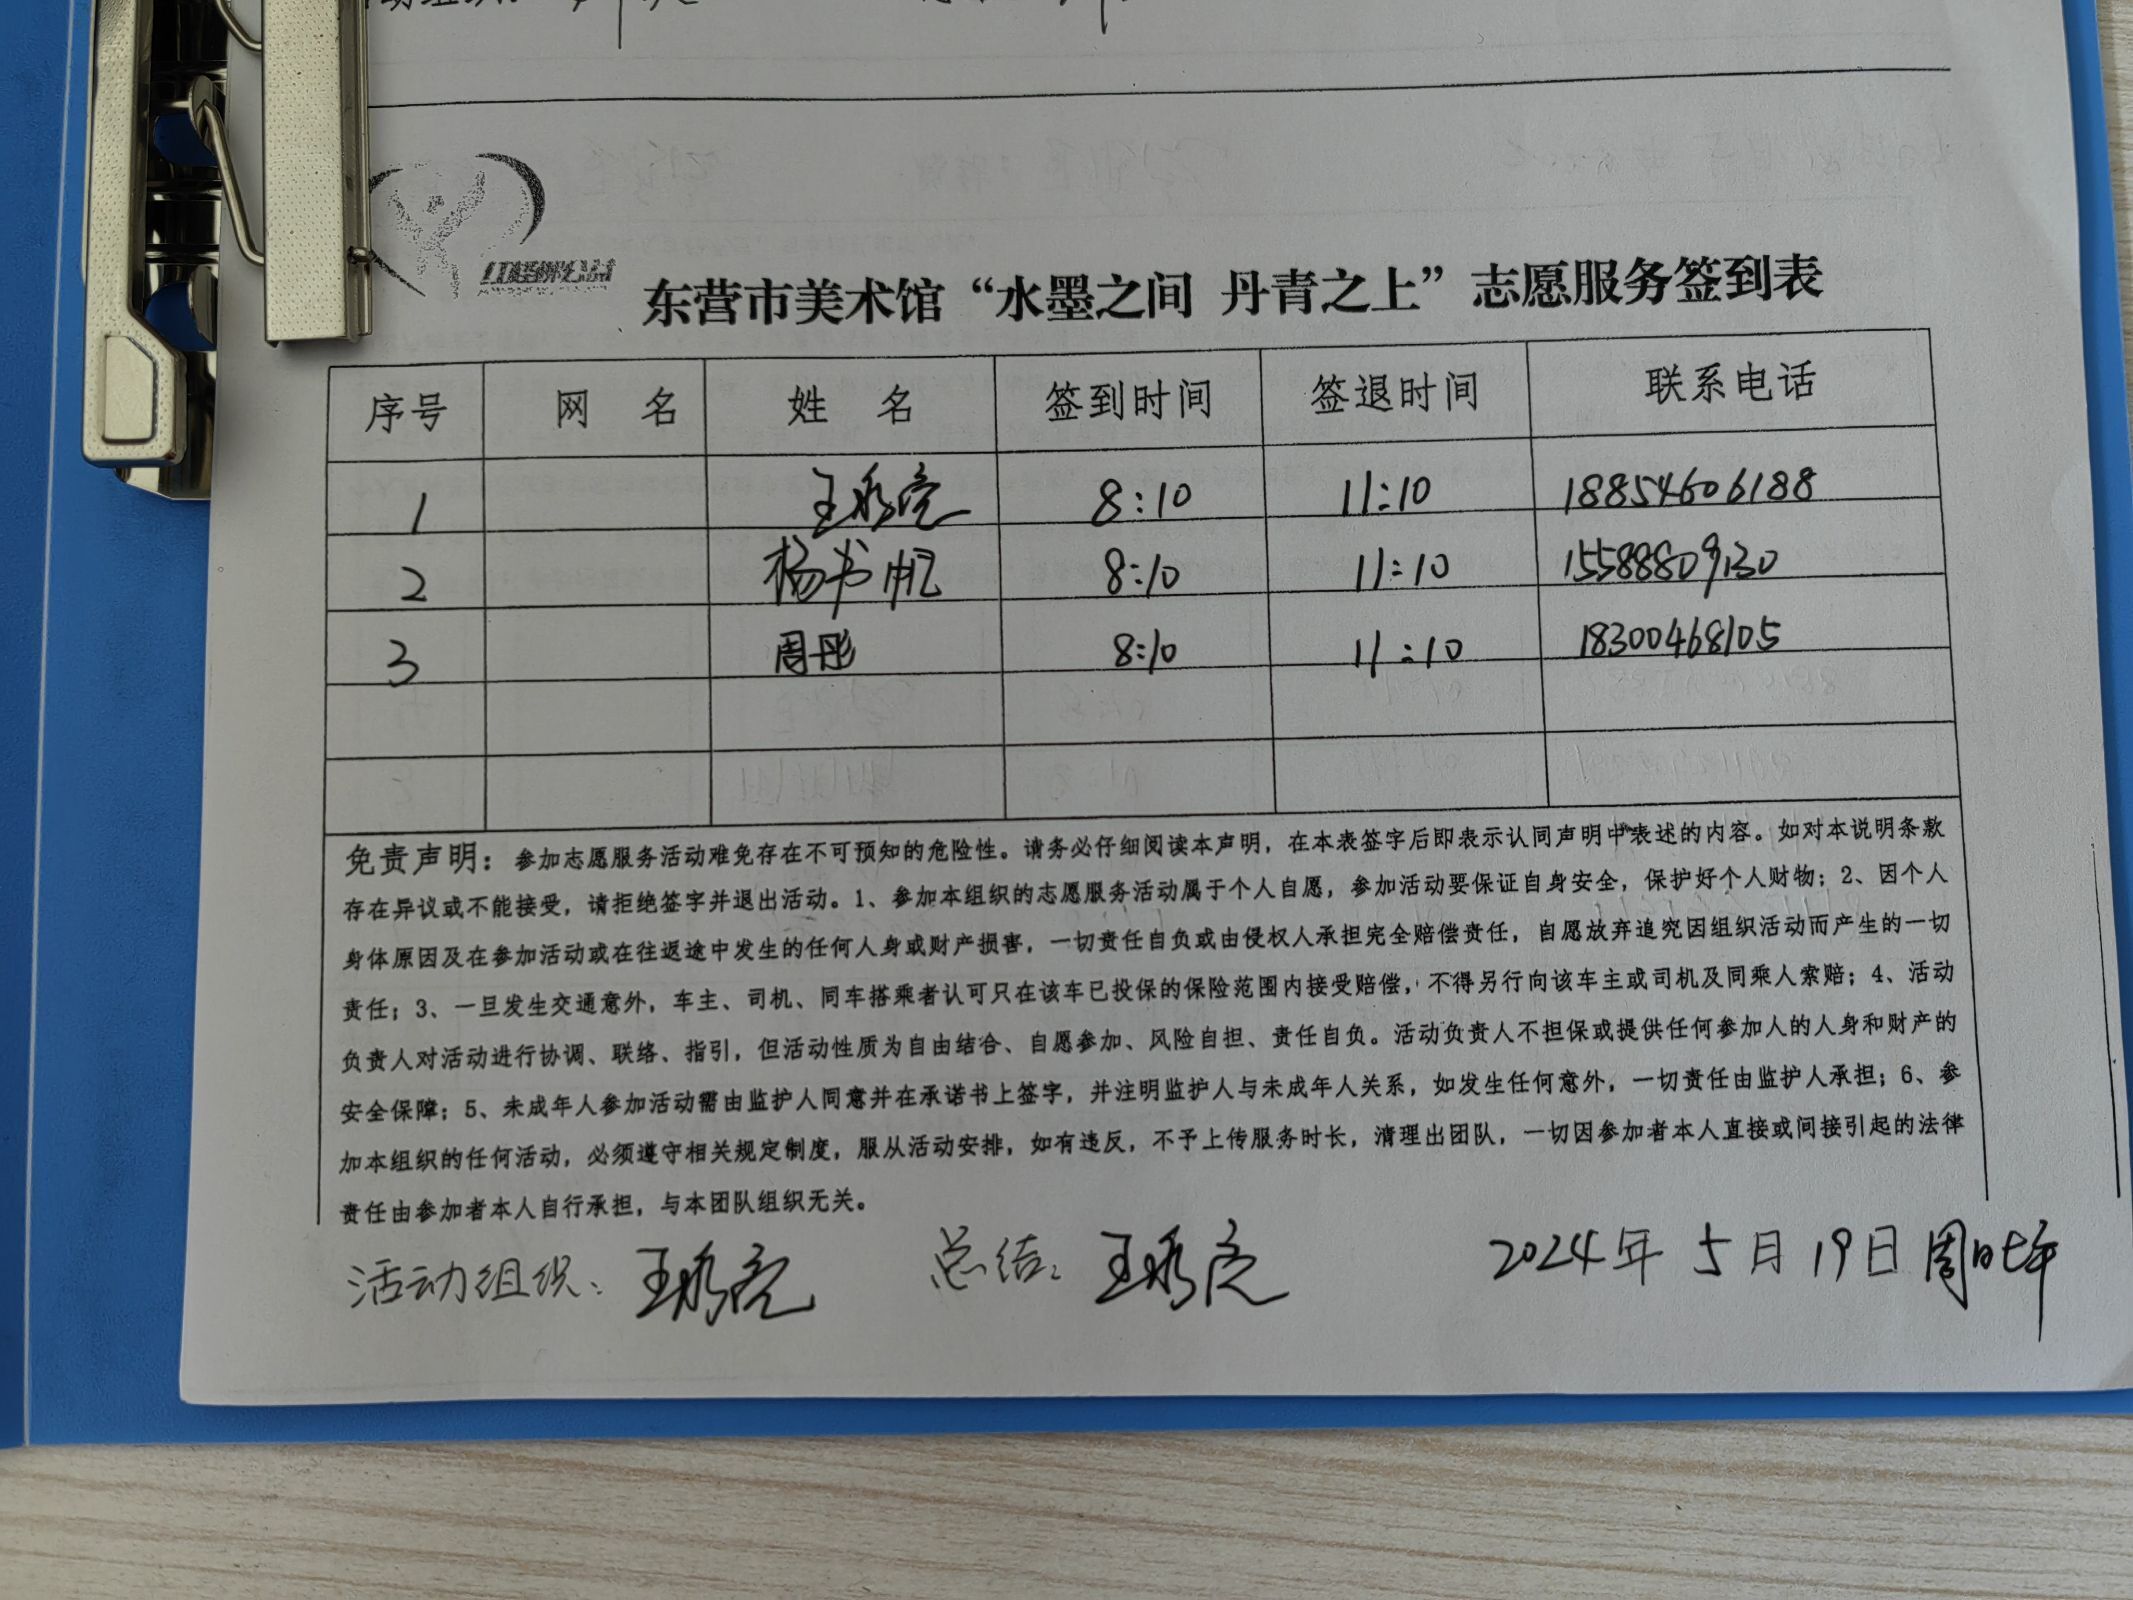 东营市美术馆“水墨之间 丹青之上”志愿服务签到表
序号 网 名 姓 名 签到时间 签退时间 联系电话
1 王秀亮 8:10 11:10 18854606188
2 杨书帆 8:10 11:10 15588809130
3 周彤 8:10 11:10 18300468105
免责声明：参加志愿服务活动难免存在不可预知的危险性。请务必仔细阅读本声明，在本表签字后即表示认同声明中表述的内容。如对本说明条款
存在异议或不能接受，请拒绝签字并退出活动。1、参加本组织的志愿服务活动属于个人自愿，参加活动要保证自身安全，保护好个人财物；2、因个人
身体原因及在参加活动或在往返途中发生的任何人身或财产损害，一切责任自负或由侵权人承担完全赔偿责任，自愿放弃追究因组织活动而产生的一切
责任；3、一旦发生交通意外，车主、司机、同车搭乘者认可只在该车已投保的保险范围内接受赔偿，不得另行向该车主或司机及同乘人索赔；4、活动
负责人对活动进行协调、联络、指引，但活动性质为自由结合、自愿参加、风险自担、责任自负。活动负责人不担保或提供任何参加人的人身和财产的
安全保障；5、未成年人参加活动需由监护人同意并在承诺书上签字，并注明监护人与未成年人关系，如发生任何意外，一切责任由监护人承担；6、参
加本组织的任何活动，必须遵守相关规定制度，服从活动安排，如有违反，不予上传服务时长，清理出团队，一切因参加者本人直接或间接引起的法律
责任由参加者本人自行承担，与本团队组织无关。
活动组织：王秀亮 总结：王秀亮 2024年5月19日周日上午